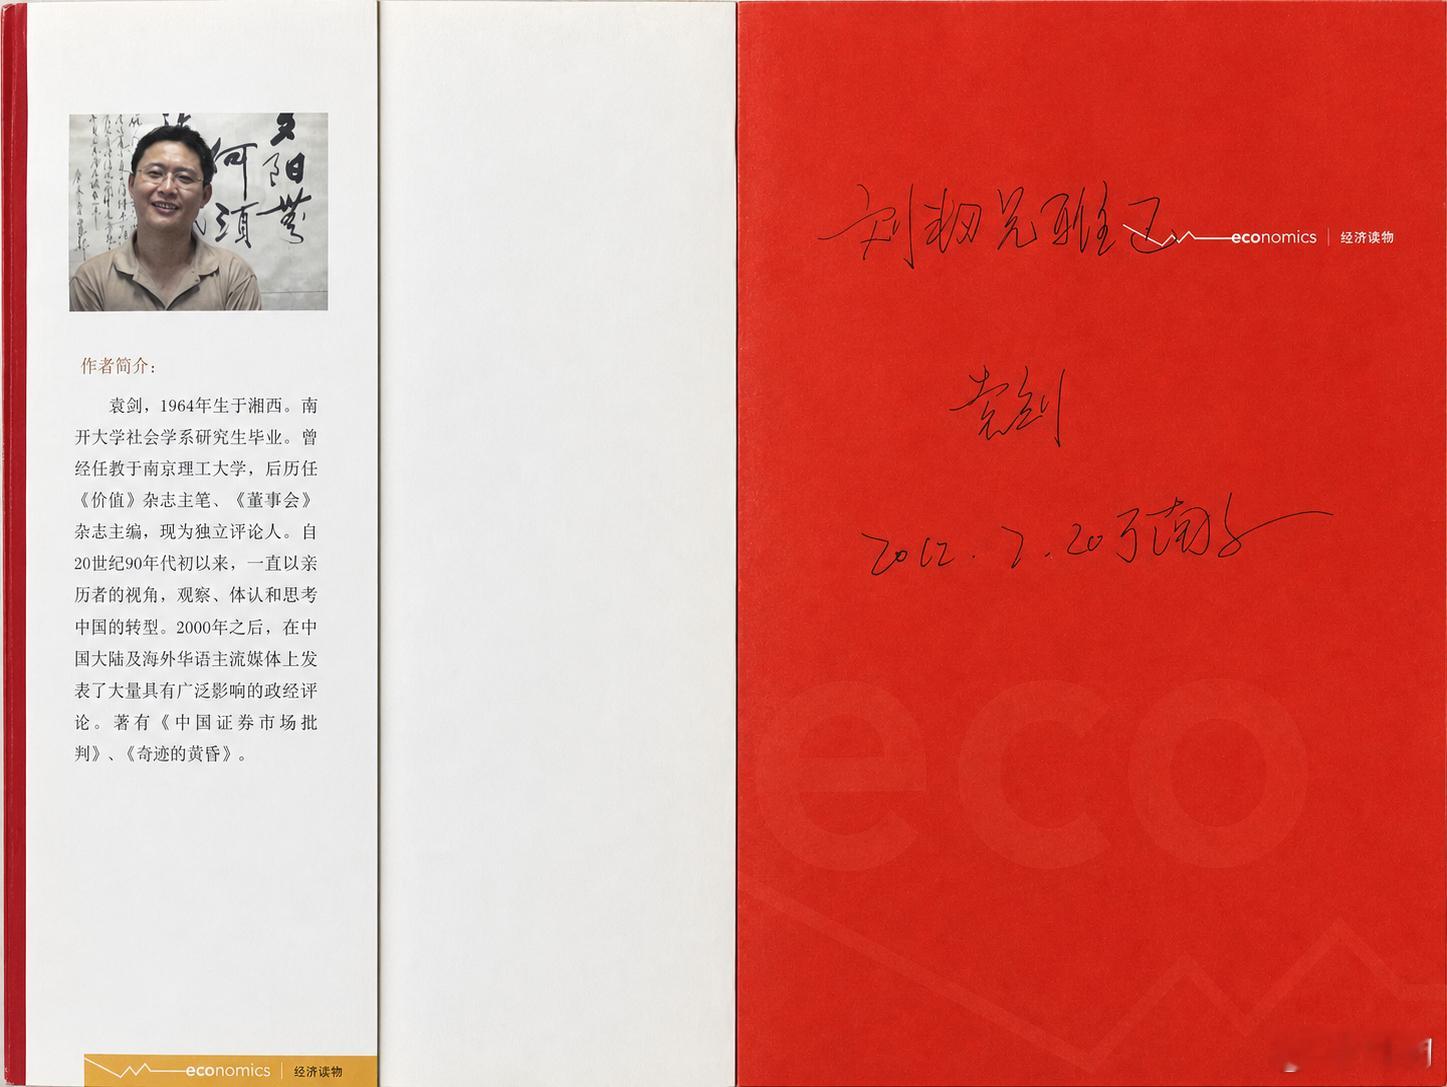 夕阳芳
何須
作者简介：
袁剑，1964年生于湘西。南
开大学社会学系研究生毕业。曾
经任教于南京理工大学，后历任
《价值》杂志主笔、《董事会》
杂志主编，现为独立评论人。自
20世纪90年代初以来，一直以亲
历者的视角，观察、体认和思考
中国的转型。2000年之后，在中
国大陆及海外华语主流媒体上发
表了大量具有广泛影响的政经评
论。著有《中国证券市场批
判》、《奇迹的黄昏》。
economics | 经济读物
刘韧兄雅正
economics | 经济读物
袁剑
2012.7.20于南京
eco